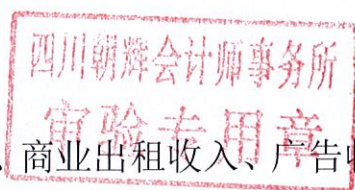 四川朝辉会计师事务所
审验专用章
、商业出租收入、广告收